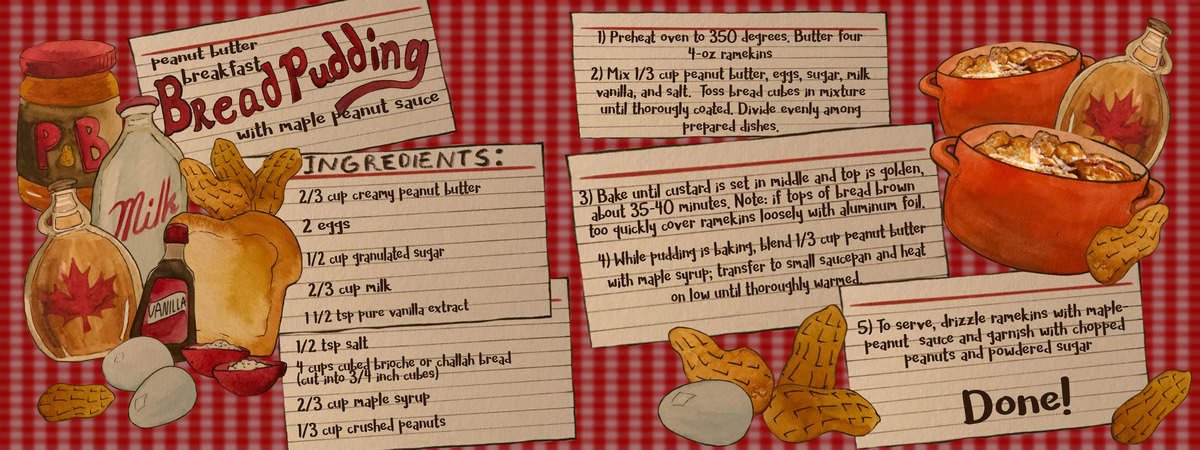 peanut butter
breakfast
Bread Pudding
with maple peanut sauce
PB
Milk
VANILLA
INGREDIENTS:
2/3 cup creamy peanut butter
2 eggs
1/2 cup granulated sugar
2/3 cup milk
1 1/2 tsp pure vanilla extract
1/2 tsp salt
4 cups cubed brioche or challah bread
(cut into 3/4 inch cubes)
2/3 cup maple syrup
1/3 cup crushed peanuts
1) Preheat oven to 350 degrees. Butter four
4-oz ramekins
2) Mix 1/3 cup peanut butter, eggs, sugar, milk
vanilla, and salt. Toss bread cubes in mixture
until thorougly coated. Divide evenly among
prepared dishes.
3) Bake until custard is set in middle and top is golden,
about 35-40 minutes. Note: if tops of bread brown
too quickly cover ramekins loosely with aluminum foil.
4) While pudding is baking, blend 1/3 cup peanut butter
with maple syrup; transfer to small saucepan and heat
on low until thoroughly warmed.
5) To serve, drizzle ramekins with maple-
peanut sauce and garnish with chopped
peanuts and powdered sugar
Done!